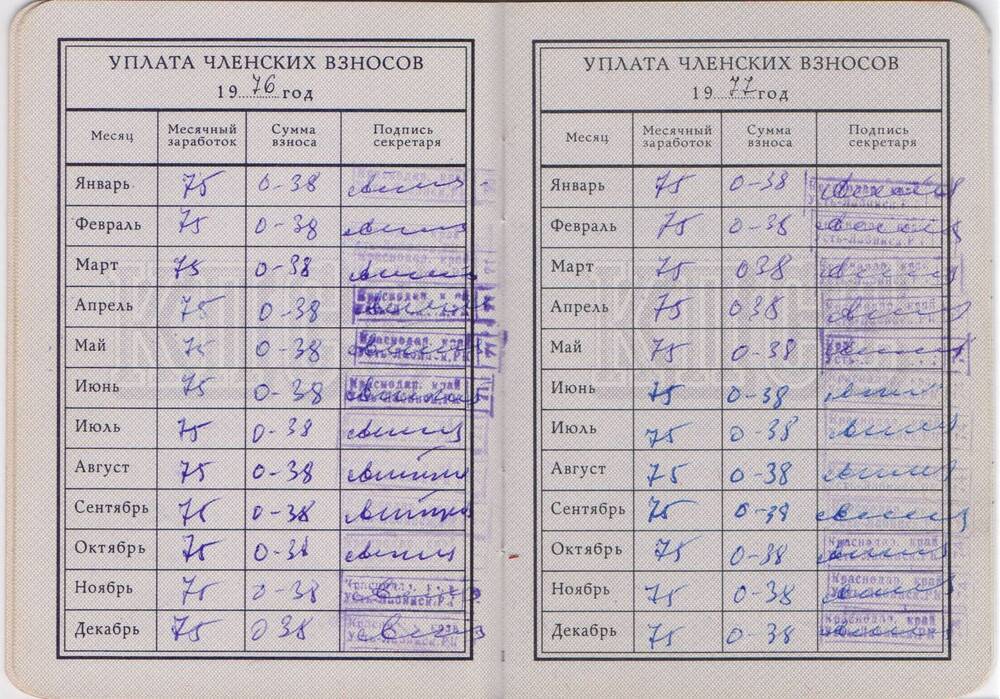 УПЛАТА ЧЛЕНСКИХ ВЗНОСОВ
19 76 год
Месяц Месячный заработок Сумма взноса Подпись секретаря
Январь 75 0-38
Февраль 75 0-38
Март 75 0-38
Апрель 75 0-38
Май 75 0-38
Июнь 75 0-38 Краснодар. край
Июль 75 0-38
Август 75 0-38
Сентябрь 75 0-38
Октябрь 75 0-38
Ноябрь 75 0-38
Декабрь 75 0 38
КПСС
УПЛАТА ЧЛЕНСКИХ ВЗНОСОВ
19 77 год
Месяц Месячный заработок Сумма взноса Подпись секретаря
Январь 75 0-38
Февраль 75 0-38
Март 75 038
Апрель 75 038
Май 75 0-38
Июнь 75 0-38
Июль 75 0-38
Август 75 0-38
Сентябрь 75 0-38
Октябрь 75 0-38 Краснодар. край
Ноябрь 75 0-38 Краснодар. край
Декабрь 75 0-38 Краснодар. край
КПСС